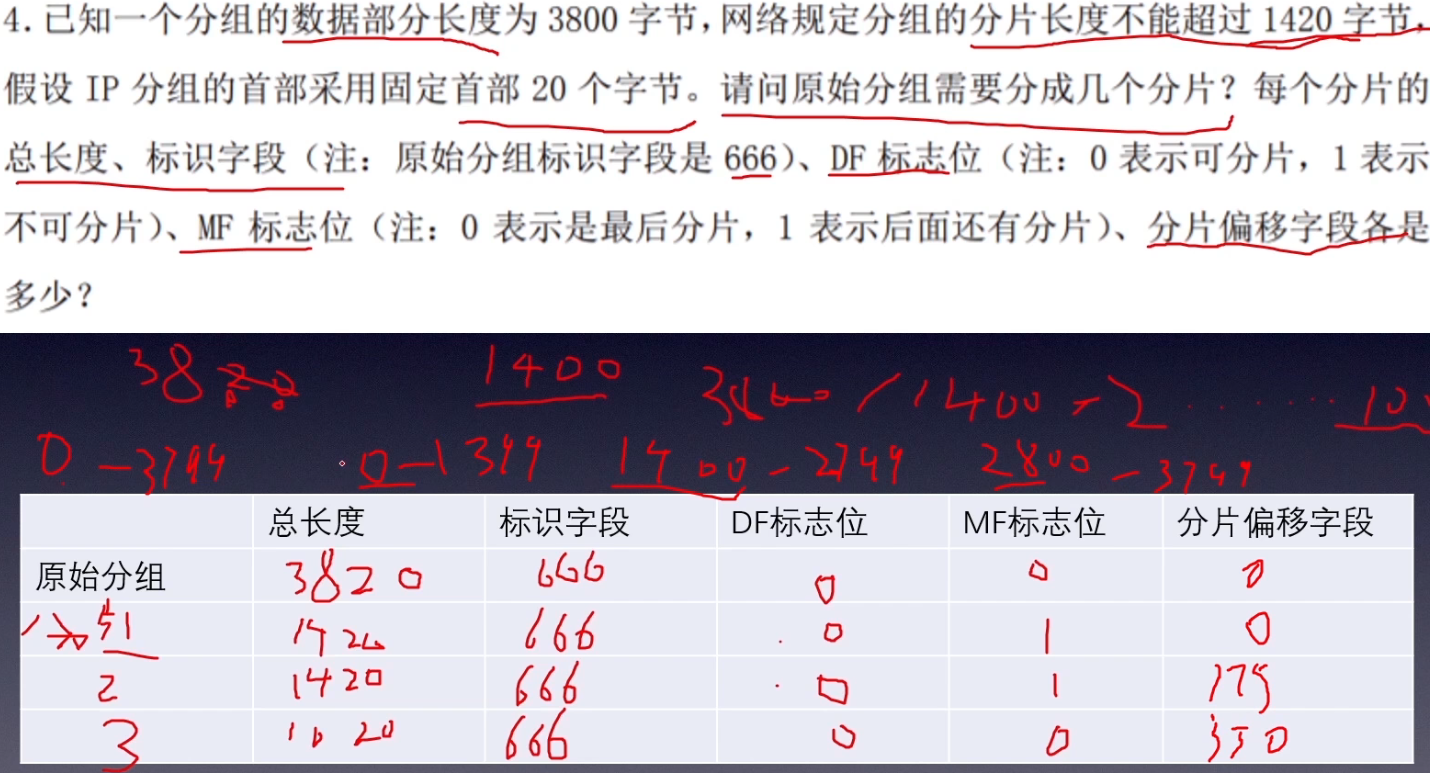 4.已知一个分组的数据部分长度为 3800 字节，网络规定分组的分片长度不能超过 1420 字节，
假设 IP 分组的首部采用固定首部 20 个字节。请问原始分组需要分成几个分片？每个分片的
总长度、标识字段（注：原始分组标识字段是 666）、DF 标志位（注：0 表示可分片，1 表示
不可分片）、MF 标志位（注：0 表示是最后分片，1 表示后面还有分片）、分片偏移字段各是
多少？
38 1400 /1400 = 2 ······
0-3799 0-1399 1400-2799 2800-3799
总长度 标识字段 DF标志位 MF标志位 分片偏移字段
原始分组 3820 666 0 0 0
1420 666 0 1 0
2 1420 666 0 1 175
3 1020 666 0 0 350